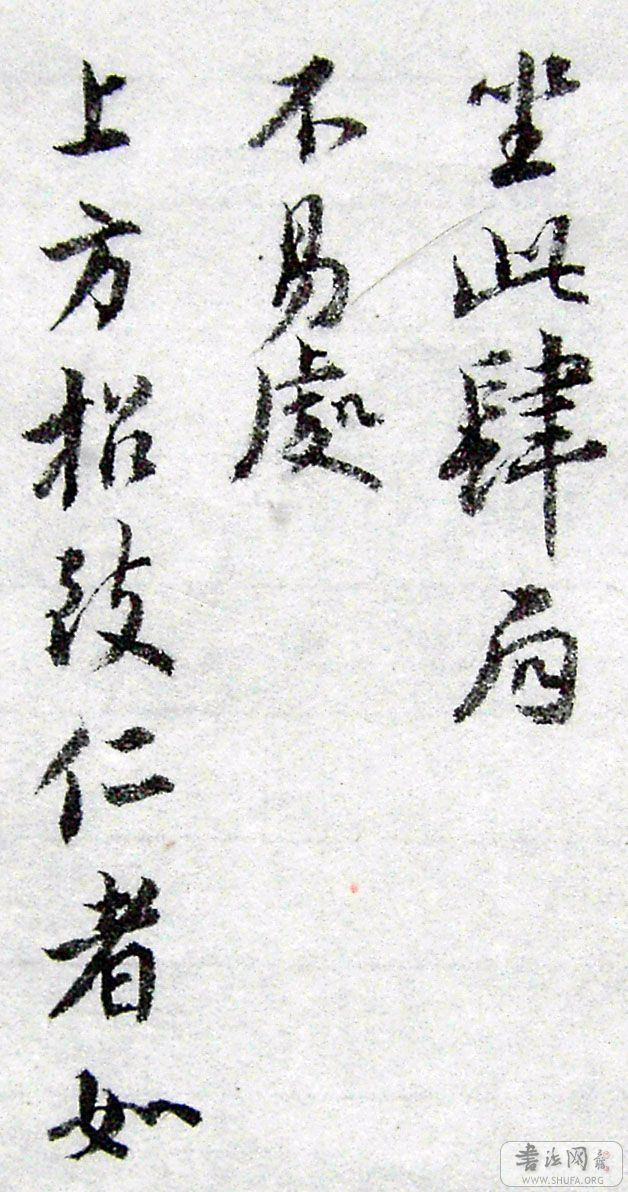 坐此肆
不易處
上方招致仁者如
書法网
WWW.SHUFA.ORG